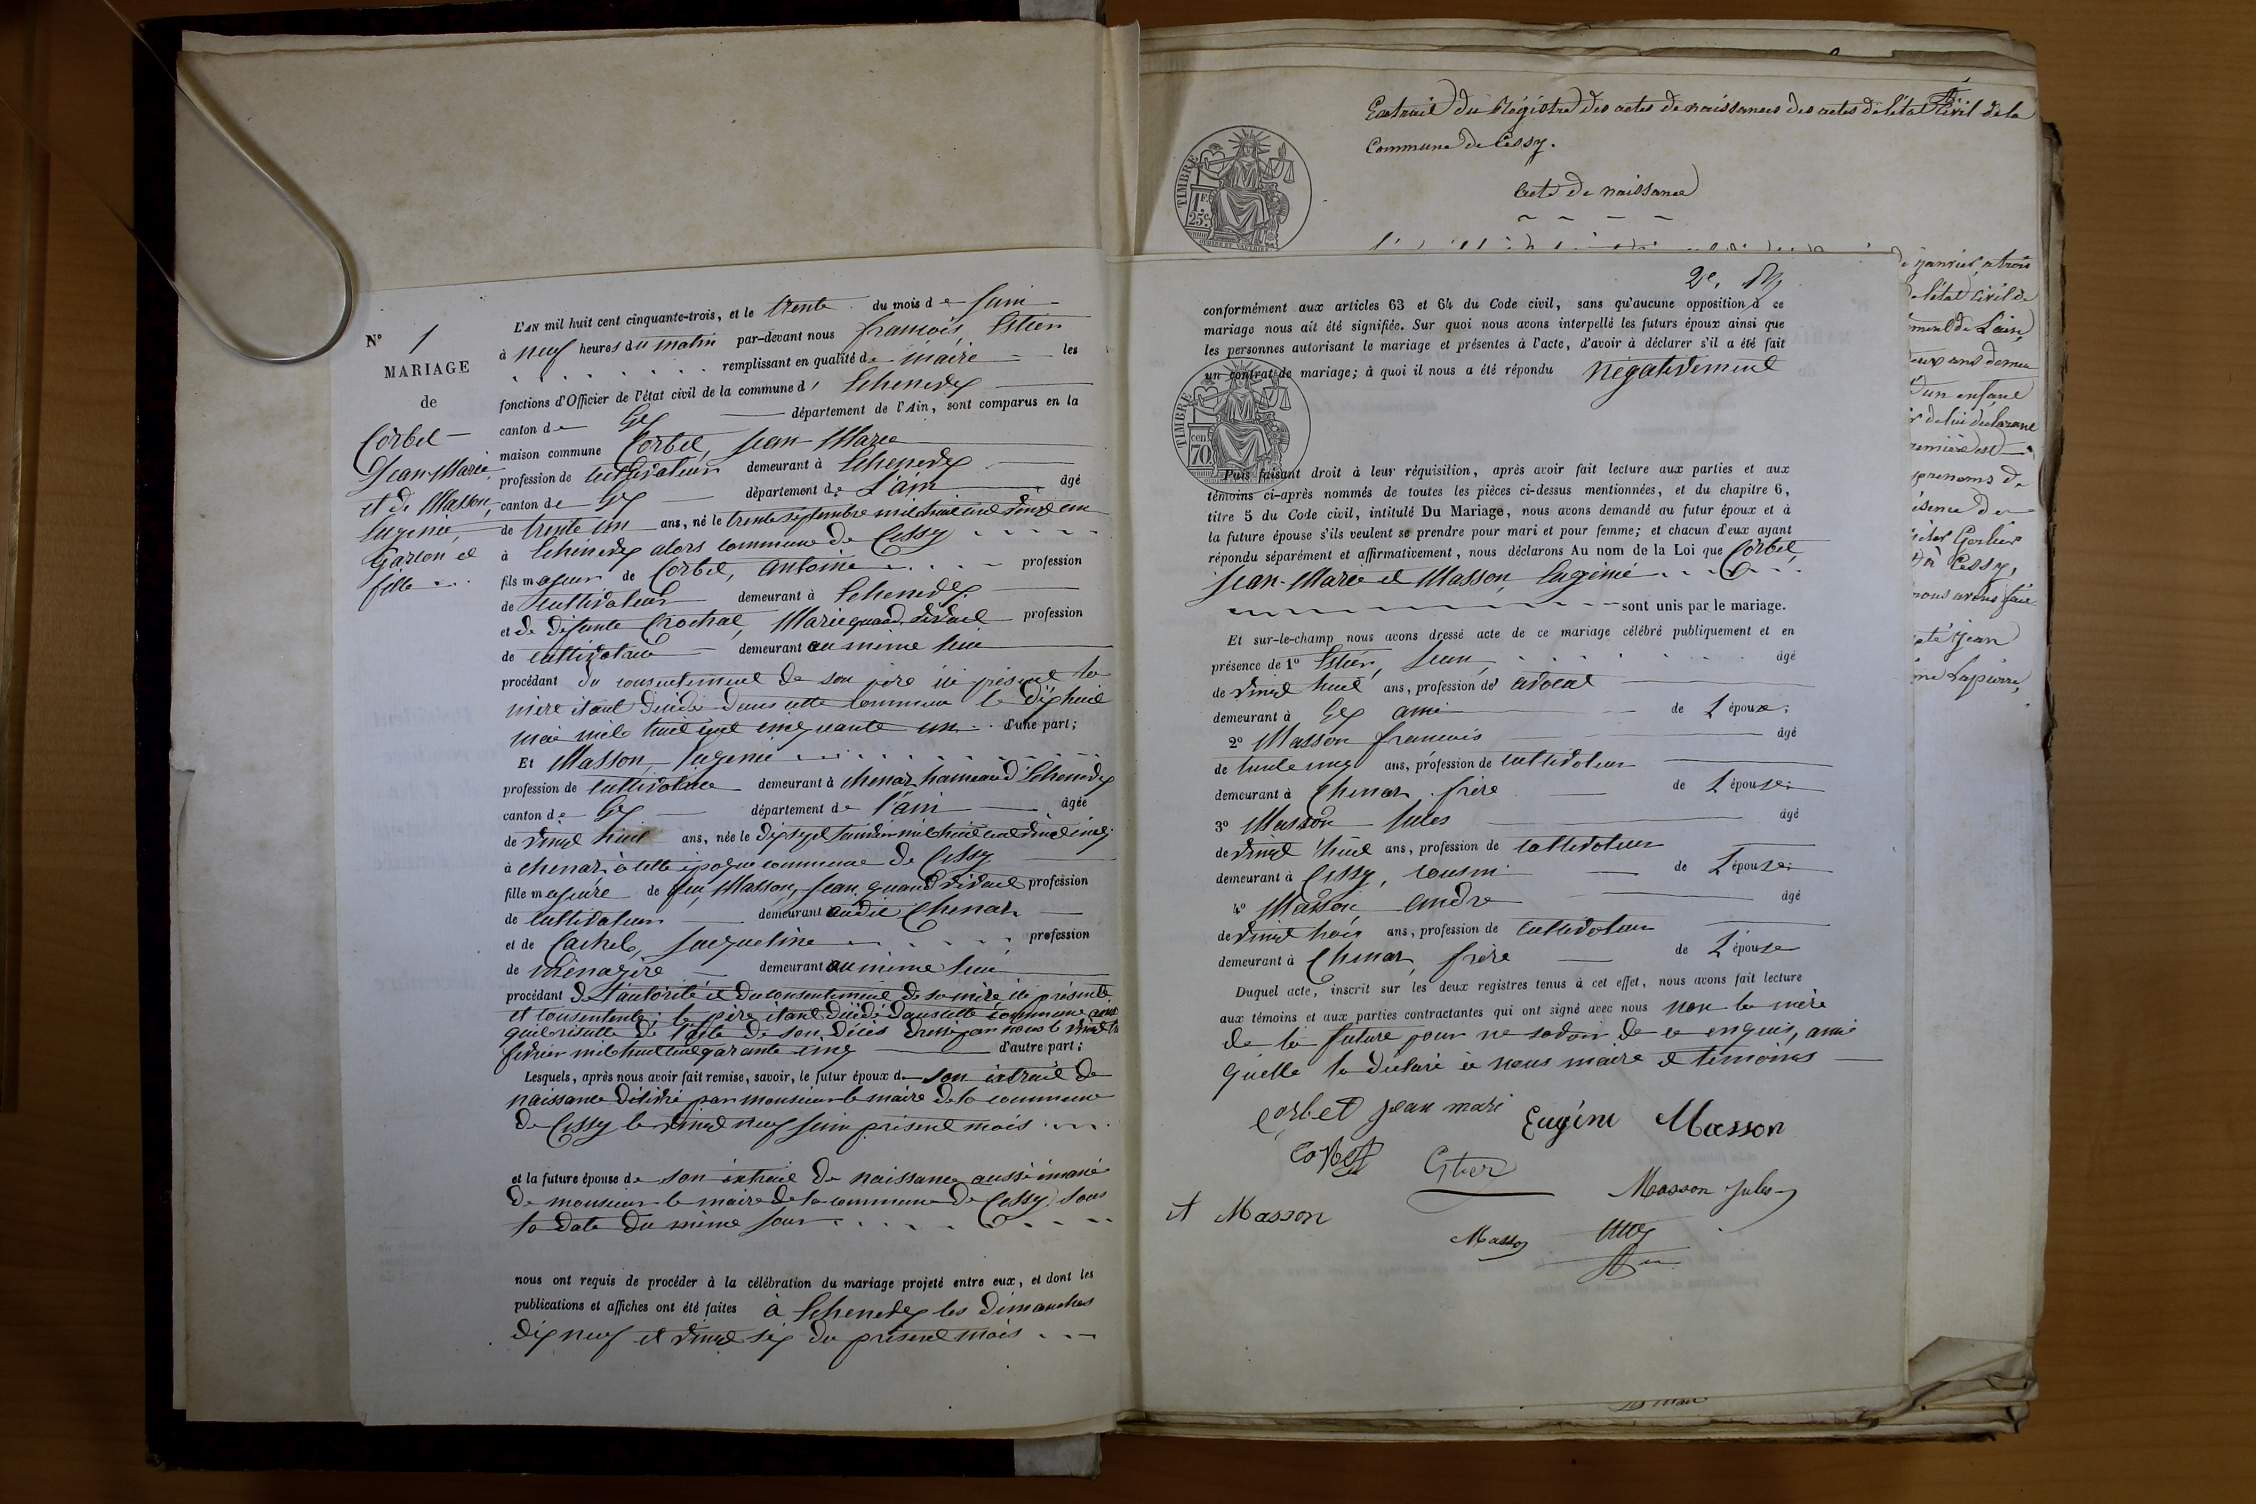 N° 1
MARIAGE
de
Corbet
Jean-Marie
et de Masson,
Eugénie,
Garçon et
fille
L'AN mil huit cent cinquante-trois, et le trente du mois de Juin
à neuf heures du matin par-devant nous françois, Estier
remplissant en qualité de maire les
fonctions d'Officier de l'état civil de la commune d' Echenevex
canton de Gex département de l'Ain, sont comparus en la
maison commune Corbet, Jean-Marie
profession de cultivateur demeurant à Echenevex
canton de Gex département de L'ain âgé
de trente un ans, né le trente septembre mil huit cent vingt un
à Echenevex alors commune de Cessy
fils majeur de Corbet, antoine profession
de cultivateur demeurant à Echenevex
et de défunte Crochat, Marie quand vivait profession
de cultivatrice demeurant au même lieu
procédant du consentement de son père ici présent la
mère étant décédée dans cette commune le dix huit
mai mil huit cent cinquante un d'une part;
Et Masson, Eugénie
profession de cultivatrice demeurant à chenaz hameau d'Echenevex
canton de Gex département de l'ain âgée
de vingt huit ans, née le dix sept Janvier mil huit cent vingt cinq
à chenaz à cette époque commune de Cessy
fille majeure de feu, Masson, Jean, quand vivait profession
de cultivateur demeurant audit Chenaz
et de Cachel, Jacqueline profession
de ménagère demeurant au même lieu
procédant de l'autorité et du consentement de sa mère ici présente
et consentente; le père étant décédé dans cette commune ainsi
qu'il résulte de l'acte de son décès dressé par nous le vingt
février mil huit cent quarante cinq d'autre part;
Lesquels, après nous avoir fait remise, savoir, le futur époux de son extrait de
naissance délivré par monsieur le maire de la commune
de Cessy le vingt neuf Juin présent mois
et la future épouse de son extrait de naissance aussi émané
de monsieur le maire de la commune de Cessy sous
la date du même jour
nous ont requis de procéder à la célébration du mariage projeté entre eux, et dont les
publications et affiches ont été faites à Echenevex les dimanches
dix neuf et vingt six du présent mois
Extrait du Régistre des actes de naissances des actes de l'état Civil de la
Commune de Cessy.
acte de naissance
TIMBRE
1F.
25c.
2e.
conformément aux articles 63 et 64 du Code civil, sans qu'aucune opposition à ce
mariage nous ait été signifiée. Sur quoi nous avons interpellé les futurs époux ainsi que
les personnes autorisant le mariage et présentes à l'acte, d'avoir à déclarer s'il a été fait
un contrat de mariage; à quoi il nous a été répondu négativement
TIMBRE
cen
70
Puis faisant droit à leur réquisition, après avoir fait lecture aux parties et aux
témoins ci-après nommés de toutes les pièces ci-dessus mentionnées, et du chapitre 6,
titre 5 du Code civil, intitulé Du Mariage, nous avons demandé au futur époux et à
la future épouse s'ils veulent se prendre pour mari et pour femme; et chacun d'eux ayant
répondu séparément et affirmativement, nous déclarons Au nom de la Loi que Corbet,
Jean-Marie et Masson, Eugénie
sont unis par le mariage.
Et sur-le-champ nous avons dressé acte de ce mariage célébré publiquement et en
présence de 1° Estier, Jean, âgé
de vingt huit ans, profession de avocat
demeurant à Gex ami de L'époux;
2° Masson françois âgé
de trente cinq ans, profession de cultivateur
demeurant à Chenaz, frère de L'épouse;
3° Masson Jules âgé
de vingt huit ans, profession de cultivateur
demeurant à Cessy, cousin de L'épouse;
4° Masson andré âgé
de vingt trois ans, profession de cultivateur
demeurant à Chenaz frère de L'épouse
Duquel acte, inscrit sur les deux registres tenus à cet effet, nous avons fait lecture
aux témoins et aux parties contractantes qui ont signé avec nous non la mère
de la future pour ne savoir de ce enquis, ainsi
qu'elle l'a déclaré à nous maire et témoins
corbet jean mari Eugéni Masson
Corbet Estier
Masson jules
A Masson
Masson
de janvier, a trois
l'état Civil de
de L'ain,
d'un enfant
de lui déclarant
prénoms de
Gorlier
à Cessy,
nous avons fait
jean
Lapierre,